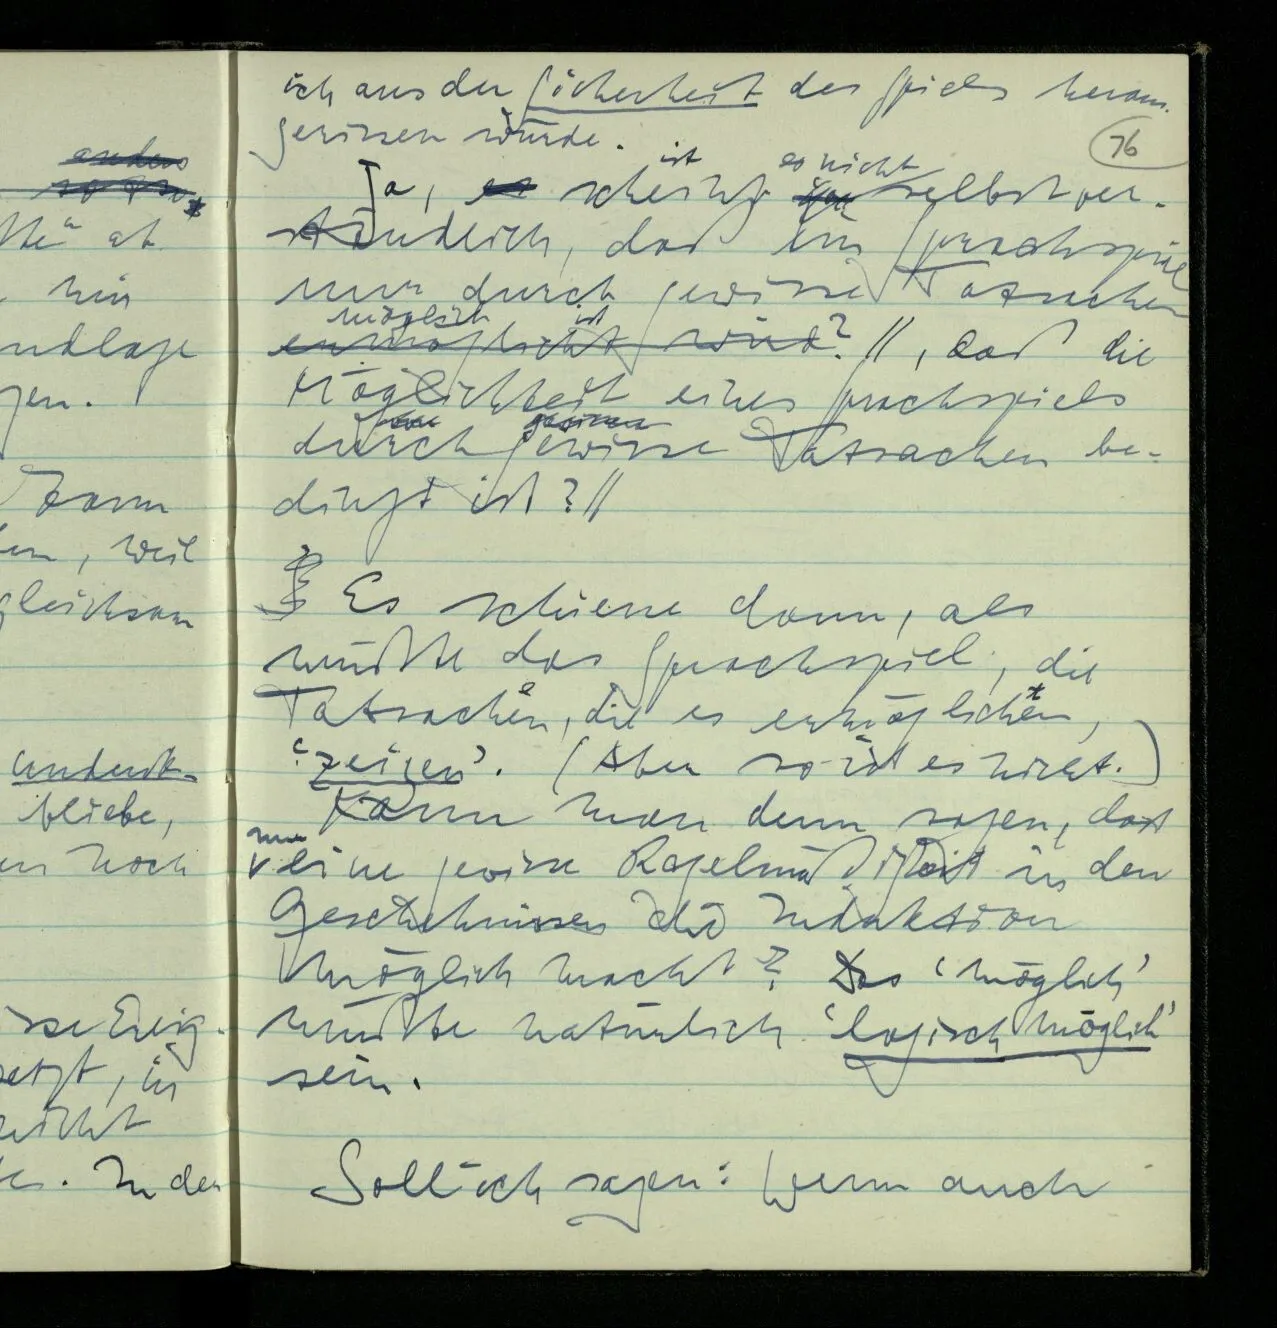 anders
tte" at
hin
ndlage
gen.
Dann
en, weil
gleichsam
undenk-
bliebe,
en noch
sse Ereig-
setzt, in
nicht
In den
ich aus der Sicherheit des Spiels heraus-
gerissen würde.
76
ist es nicht
Ja, es scheint selbstver-
ständlich, daß ein Sprachspiel
nur durch gewisse Tatsachen
möglich ist
ermöglicht wird? //, daß die
Möglichkeit eines Sprachspiels
durch gewisse Tatsachen be-
dingt ist? //
Es schiene dann, als
müßte das Sprachspiel, die
Tatsachen, die es ermöglichen,
'zeigen'. (Aber so ist es nicht.)
Kann man denn sagen, daß
nur
eine gewisse Regelmäßigkeit in den
Geschehnissen die Induktion
möglich macht? Das 'möglich'
müßte natürlich 'logisch möglich'
sein.
Soll ich sagen: Wenn auch